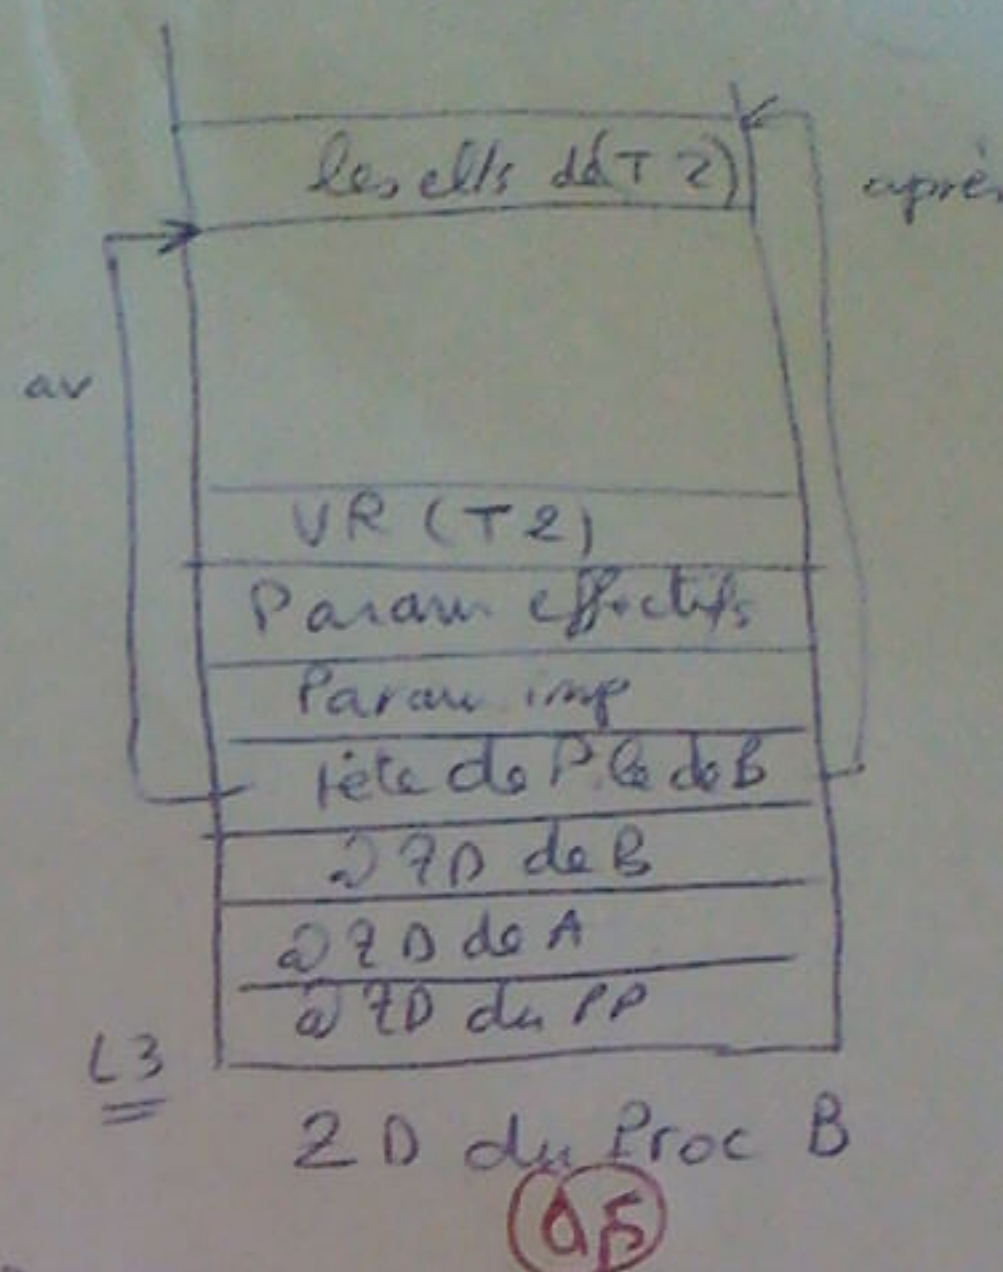 les elts de (T2)
après
av
VR (T2)
Param effectifs
Param imp
Tête de P.le de B
@ ZD de B
@ ZD de A
@ ZD du PP
L3
ZD du Proc B
05